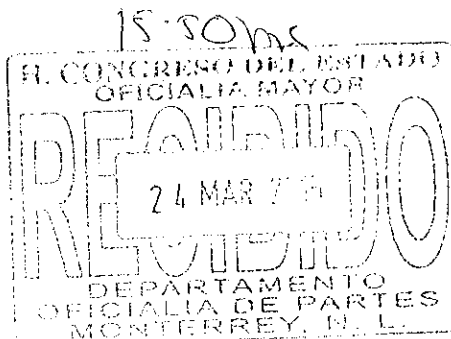 15:50 hs
H. CONGRESO DEL ESTADO
OFICIALIA MAYOR
RECIBIDO
24 MAR
DEPARTAMENTO
OFICIALIA DE PARTES
MONTERREY, N. L.